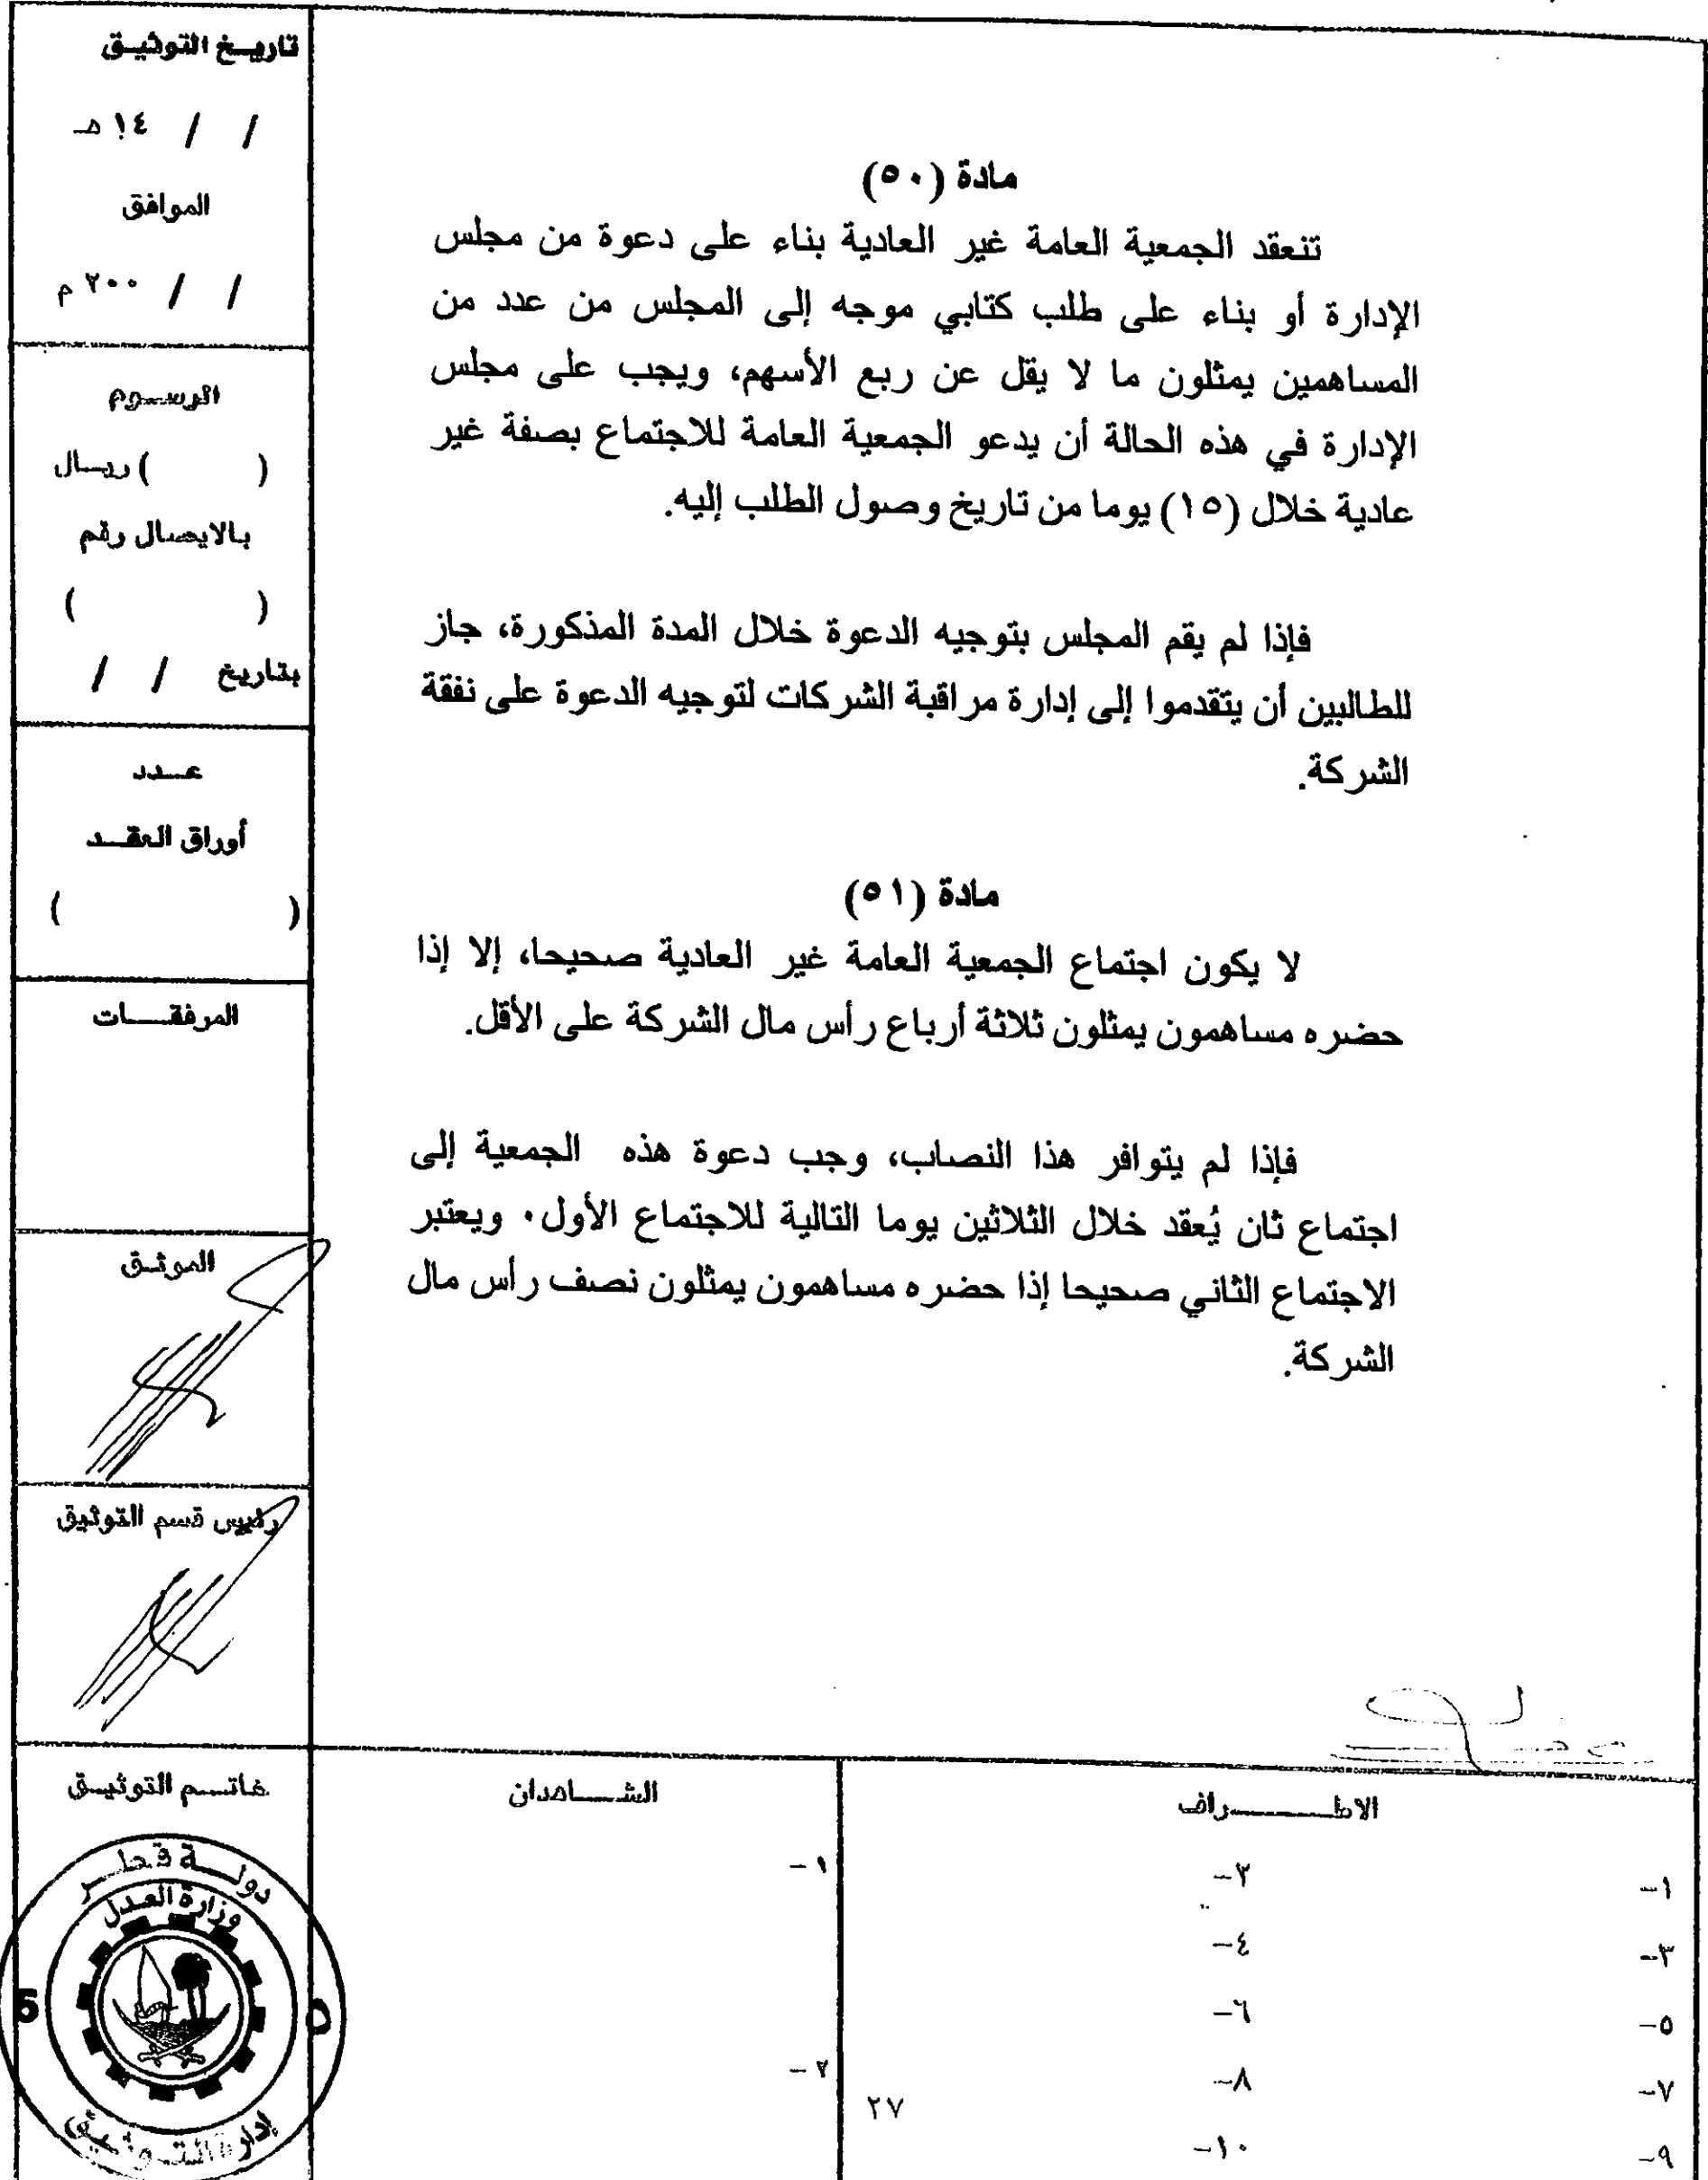 مادة (٥٠)
تنعقد الجمعية العامة غير العادية بناء على دعوة من مجلس
الإدارة أو بناء على طلب كتابي موجه إلى المجلس من عدد من
المساهمين يمثلون ما لا يقل عن ربع الأسهم، ويجب على مجلس
الإدارة في هذه الحالة أن يدعو الجمعية العامة للاجتماع بصفة غير
عادية خلال (١٥) يوما من تاريخ وصول الطلب إليه.
فإذا لم يقم المجلس بتوجيه الدعوة خلال المدة المذكورة، جاز
للطالبين أن يتقدموا إلى إدارة مراقبة الشركات لتوجيه الدعوة على نفقة
الشركة.
مادة (٥١)
لا يكون اجتماع الجمعية العامة غير العادية صحيحا، إلا إذا
حضره مساهمون يمثلون ثلاثة أرباع رأس مال الشركة على الأقل.
فإذا لم يتوافر هذا النصاب، وجب دعوة هذه الجمعية إلى
اجتماع ثان يُعقد خلال الثلاثين يوما التالية للاجتماع الأول٠ ويعتبر
الاجتماع الثاني صحيحا إذا حضره مساهمون يمثلون نصف رأس مال
الشركة.
تاريخ التوثيق
/ / ١٤ هـ
الموافق
/ / ٢٠٠ م
الرسوم
( ) ريال
بالايصال رقم
( )
بتاريخ / /
عدد
أوراق العقد
( )
المرفقات
الموثق
رئيس قسم التوثيق
خاتم التوثيق
دولة قطر
وزارة العدل
5 ٥
إدارة التوثيق
الاطراف
١- ٢-
٣- ٤-
٥- ٦-
٧- ٨-
٩- ١٠-
الشاهدان
١-
٢-
٢٧